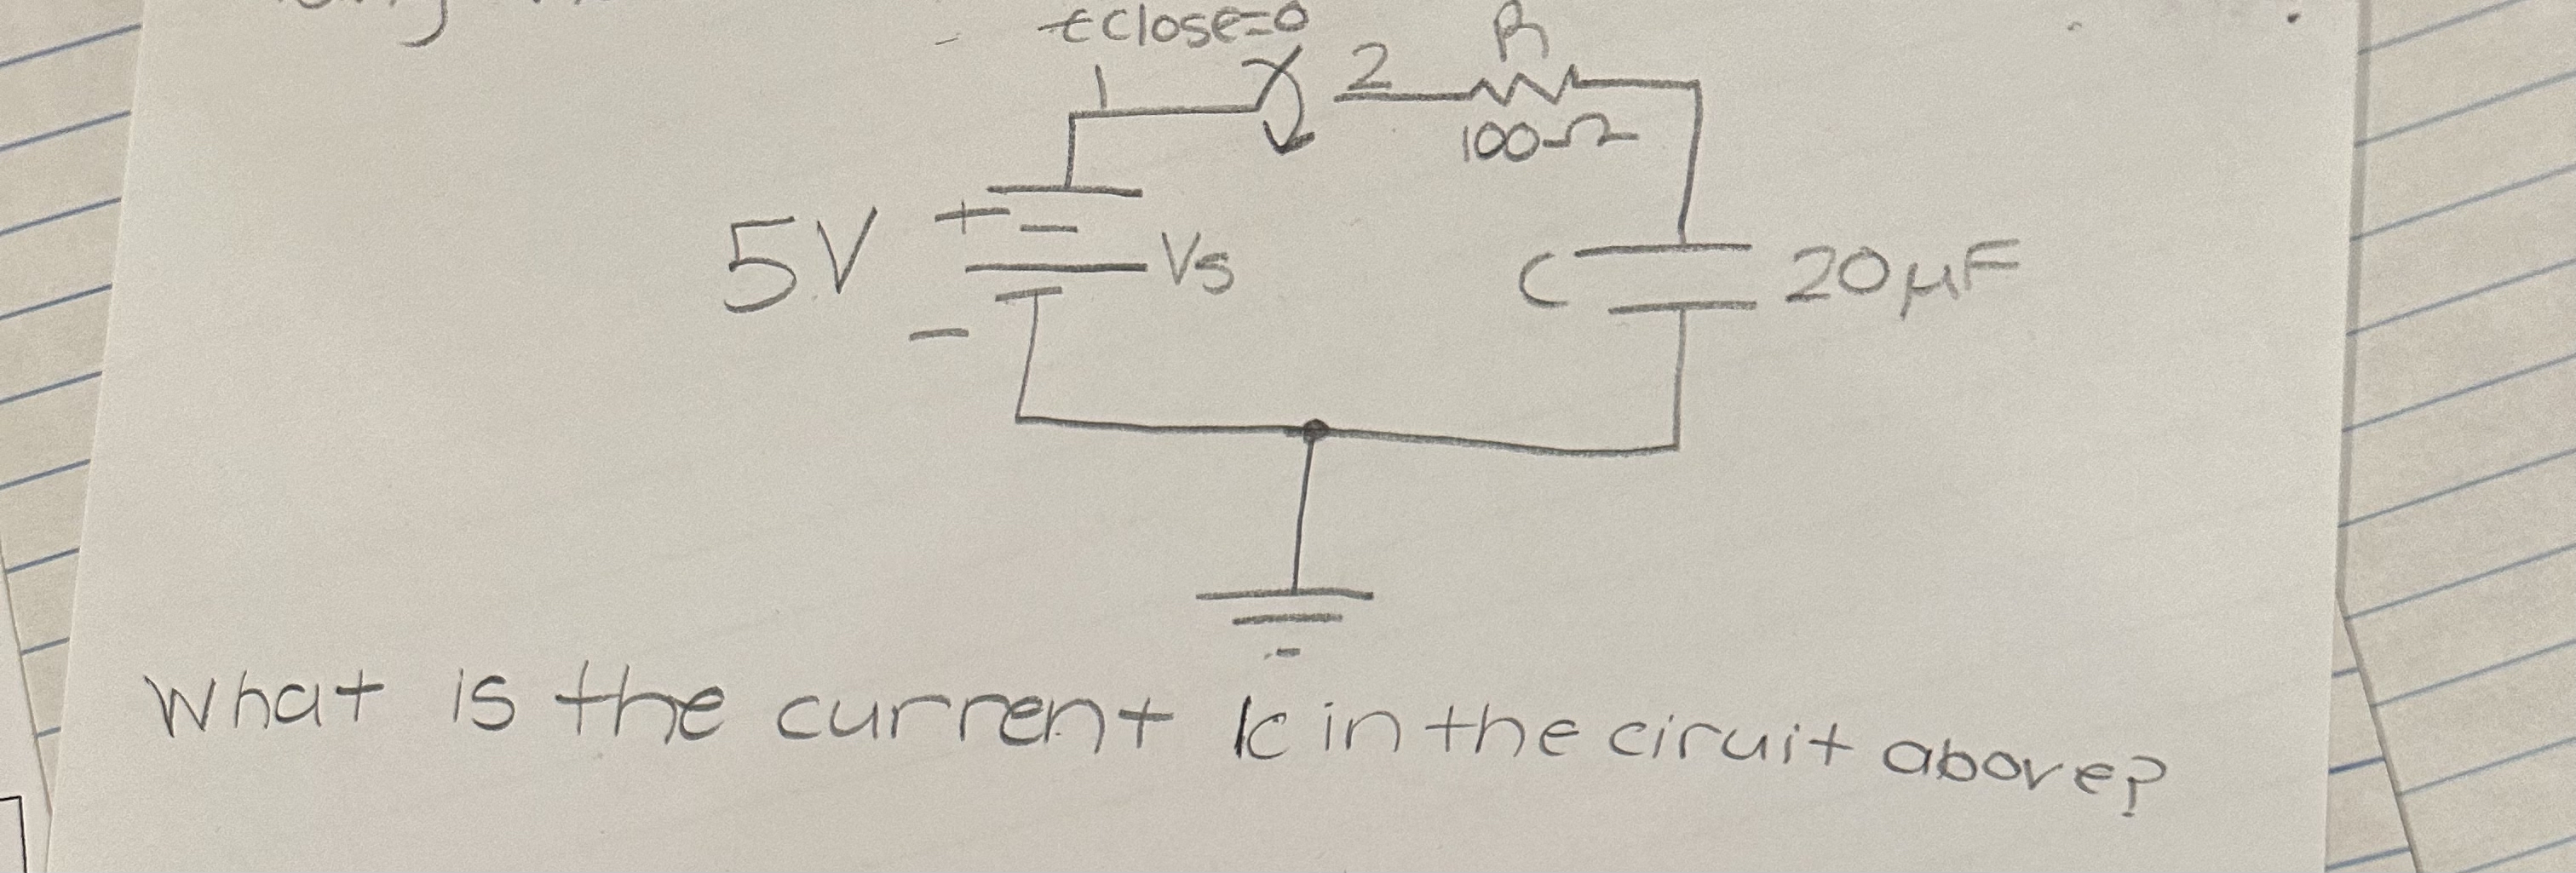 tclose=0
1
2
R
100Ω
5V
+
Vs
-
C
20μF
What is the current Ic in the ciruit above?